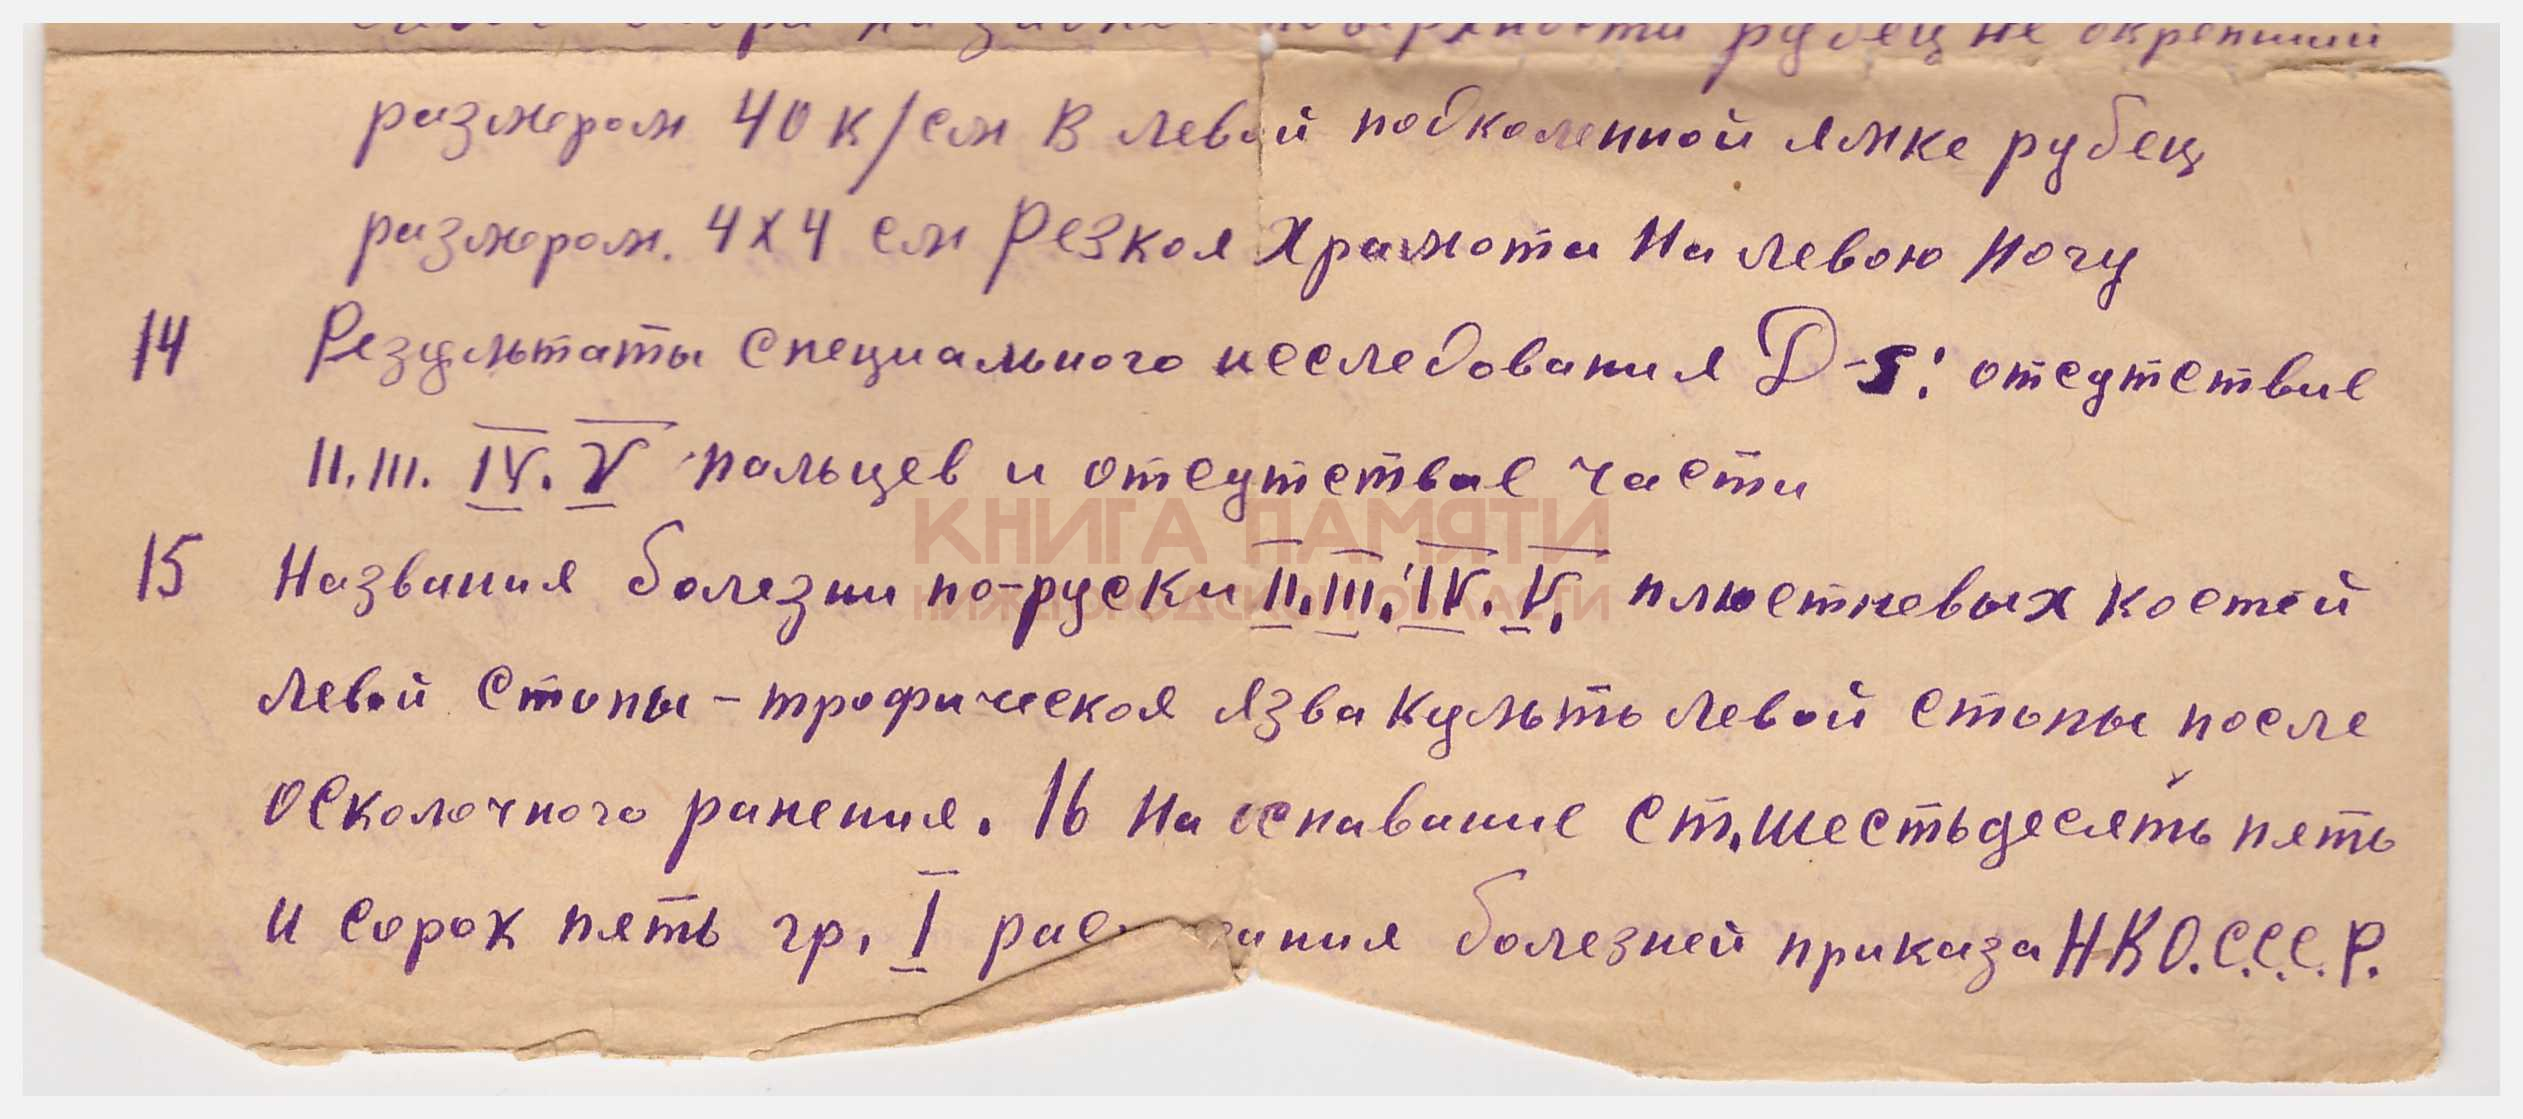 поверхности рубец не окрепший
размером 40 к/см В левой подколенной ямке рубец
размером. 4х4 см Резкая Хромота На левою Ногу
14 Результаты специального исследования D-S: отсутствие
II. III. IV. V пальцев и отсутствие части
КНИГА ПАМЯТИ
15 Названия болезни по-руски II. III. IV. V. плюстневых костей
НИЖЕГОРОДСКОЙ ОБЛАСТИ
левой стопы - трофическая язва культь левой стопы после
осколочного ранения. 16 На оснавание ст. шестьдесять пять
и сорок пять гр. I болезней приказа Н К О. С. С. С. Р.